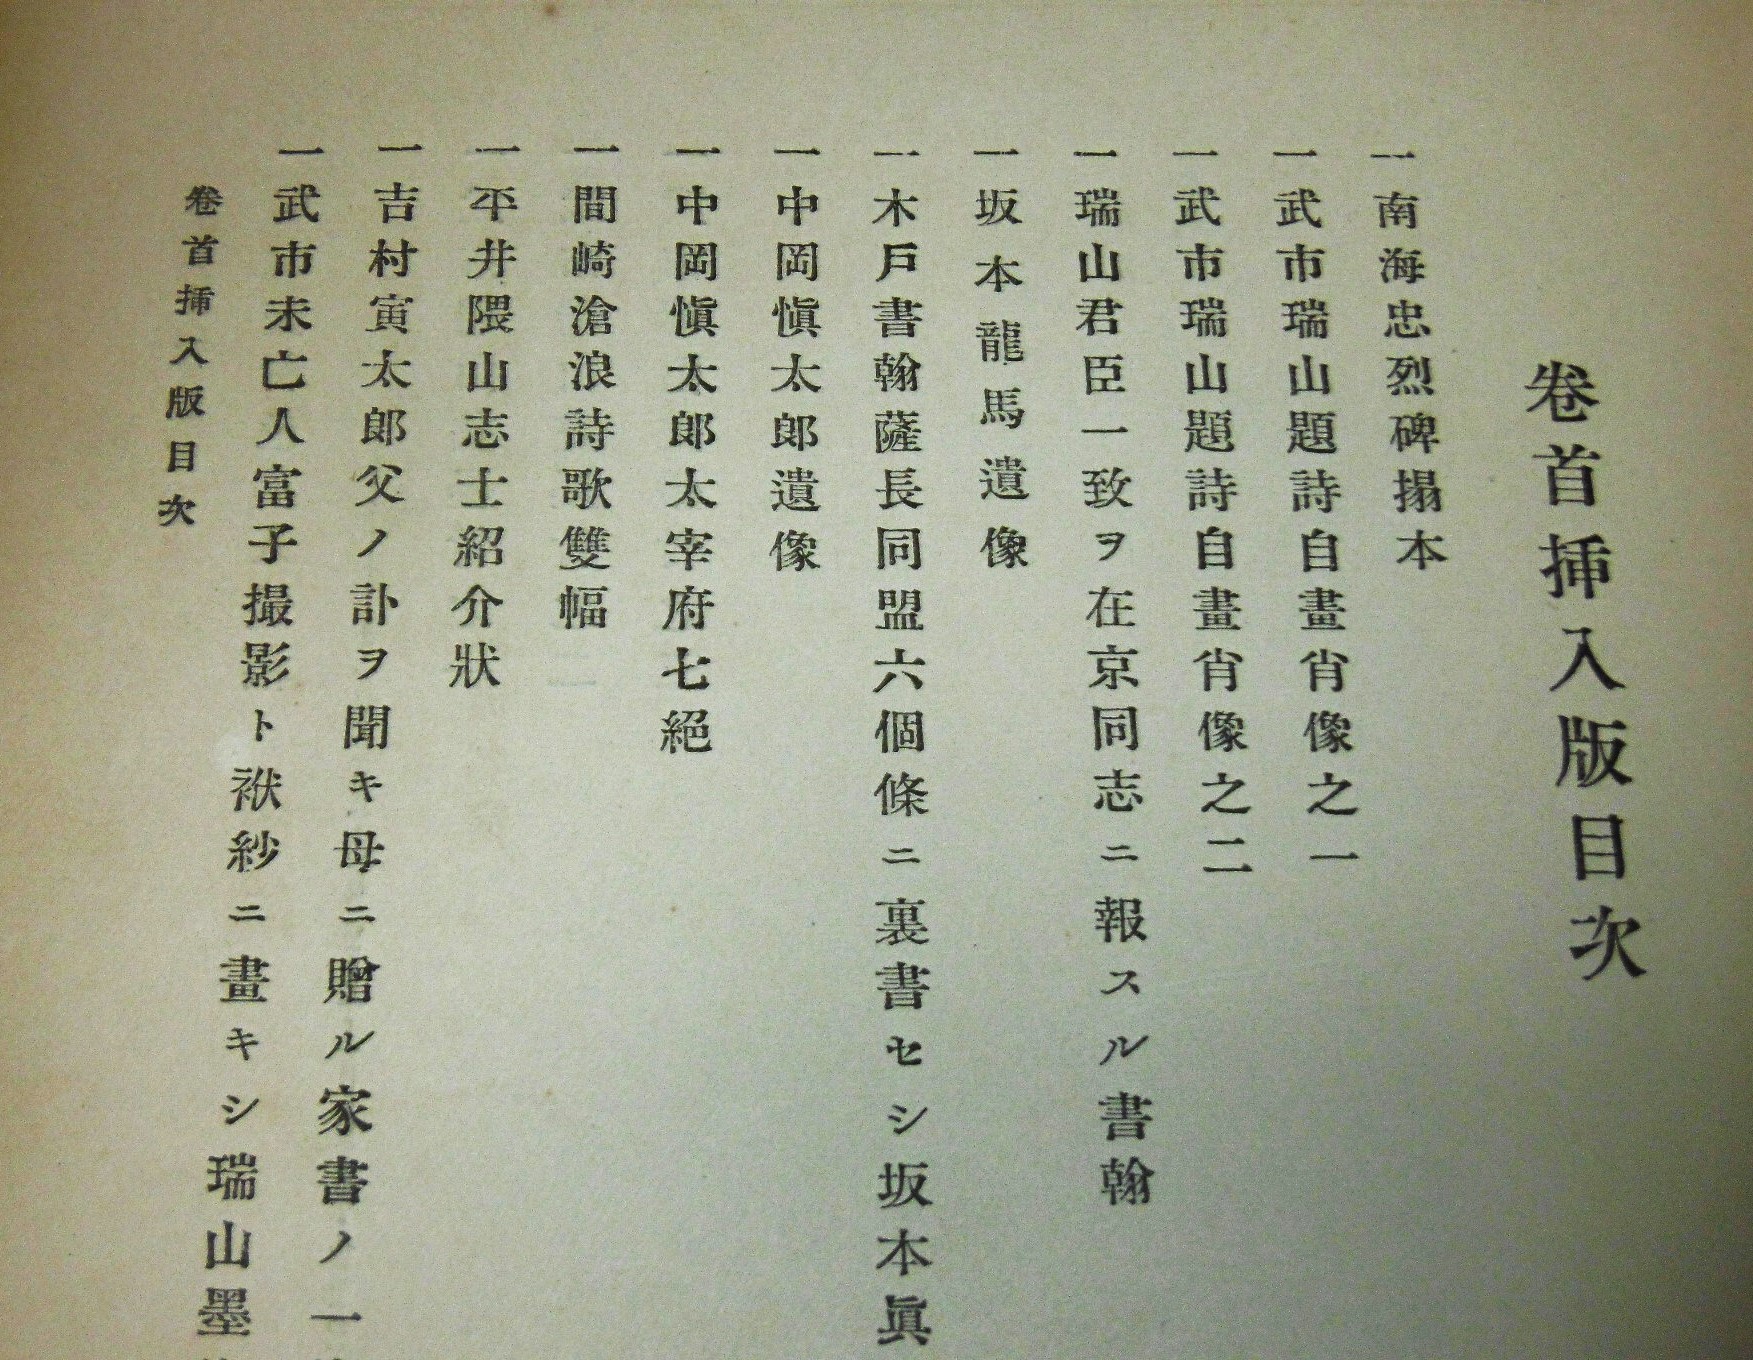 卷首挿入版目次
一南海忠烈碑搨本
一武市瑞山題詩自畫肖像之一
一武市瑞山題詩自畫肖像之二
一瑞山君臣一致ヲ在京同志ニ報スル書翰
一坂本龍馬遺像
一木戸書翰薩長同盟六個條ニ裏書セシ坂本眞
一中岡愼太郎遺像
一中岡愼太郎太宰府七絕
一間崎滄浪詩歌雙幅
一平井隈山志士紹介狀
一吉村寅太郎父ノ訃ヲ聞キ母ニ贈ル家書ノ一
一武市未亡人富子撮影ト袱紗ニ畫キシ瑞山墨
卷首挿入版目次